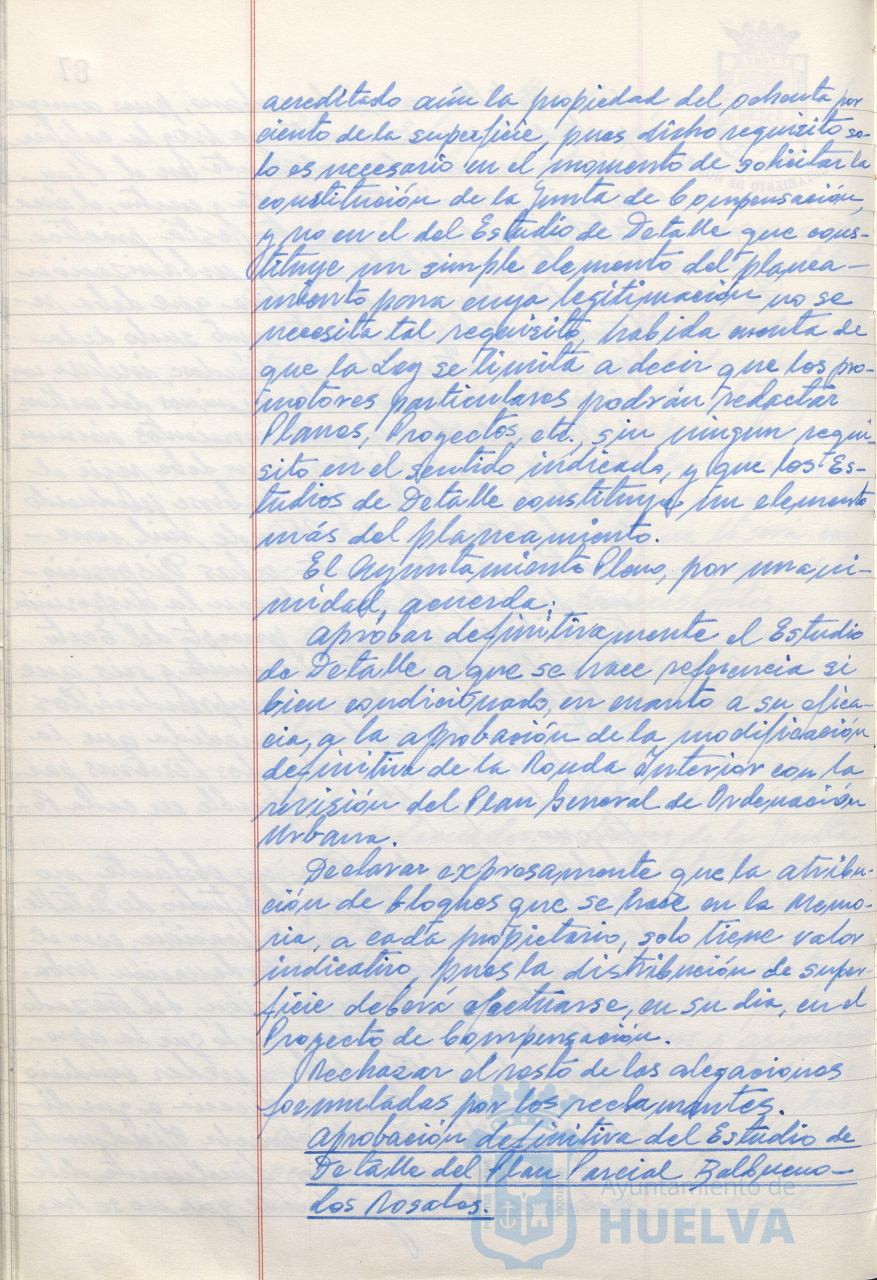 acreditado aún la propiedad del ochenta por
ciento de la superficie, pues dicho requisito so-
lo es necesario en el momento de solicitar la
constitución de la Junta de Compensación,
y no en el del Estudio de Detalle que cons-
tituye un simple elemento del planea-
miento para cuya legitimación no se
necesita tal requisito, habida cuenta de
que la Ley se limita a decir que los pro-
motores particulares podrán redactar
Planes, Proyectos, etc., sin ningun requi-
sito en el sentido indicado, y que los Es-
tudios de Detalle constituye un elemento
más del planeamiento.
El Ayuntamiento Pleno, por unani-
midad, acuerda:
Aprobar definitivamente el Estudio
de Detalle a que se hace referencia si
bien condicionado, en cuanto a su efica-
cia, a la aprobación de la modificación
definitiva de la Ronda Interior con la
revisión del Plan General de Ordenación
Urbana.
Declarar expresamente que la atribu-
ción de bloques que se hace en la Memo-
ria, a cada propietario, solo tiene valor
indicativo, pues la distribución de super-
ficie deberá efectuarse, en su dia, en el
Proyecto de Compensación.
Rechazar el resto de las alegaciones
formuladas por los reclamantes.
Aprobación definitiva del Estudio de
Detalle del Plan Parcial Balbueno-
Los Rosales.
Ayuntamiento de
HUELVA